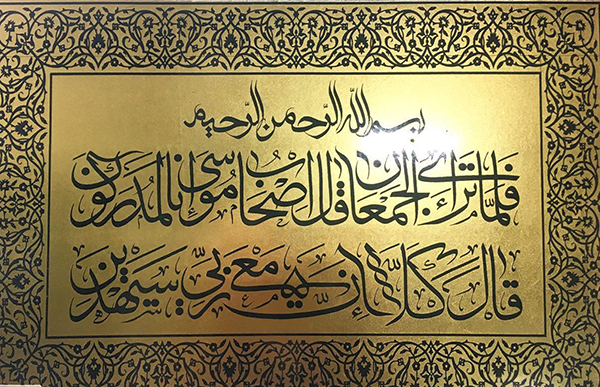 بسم الله الرحمن الرحيم
فلمّا تراءى الجمعان قال اصحاب موسى انا لمدركون
قال كلّا إنّ معي ربّي سيهدين